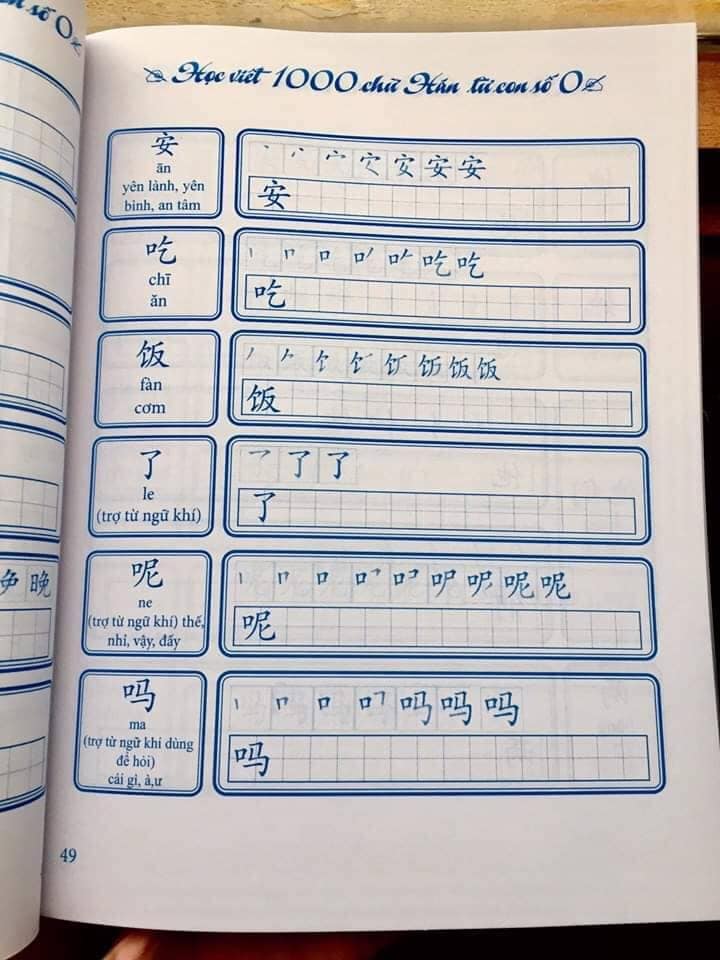 Học viết 1000 chữ Hán từ con số 0
安
ān
yên lành, yên
bình, an tâm
安 安 安
安
吃
chī
ăn
口 吃 吃
吃
饭
fàn
cơm
饭 饭
饭
了
le
(trợ từ ngữ khí)
了 了
了
呢
ne
(trợ từ ngữ khí) thế,
nhỉ, vậy, đấy
口 呢 呢
呢
吗
ma
(trợ từ ngữ khí dùng
để hỏi)
cái gì, à,ư
口 吗 吗 吗
吗
49
số 0
晚